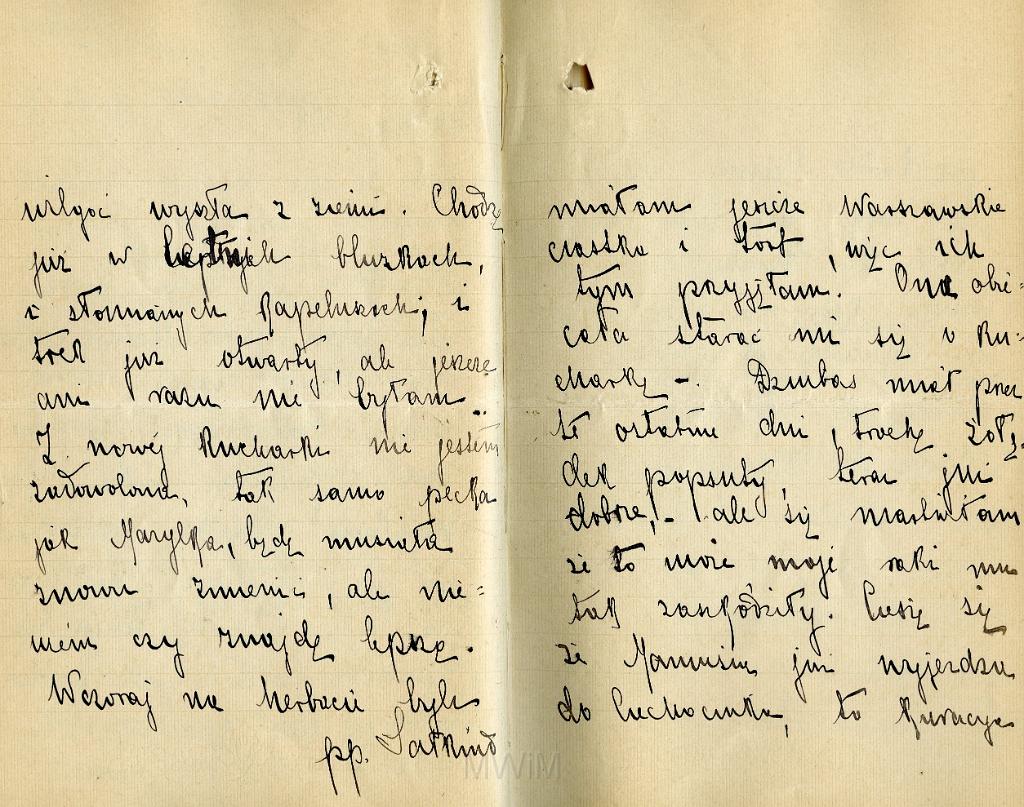 wilgoć wyszła z ziemi. Chodzę
już w lepszych bluzkach,
i słomianych kapeluszach; i
trek już otwarty, ale jeszcze
ani razu nie byłam.
Z nowéj kucharki nie jestem
zadowolona, tak samo pęcka
jak Marylka, będę musiała
znowu zmienić, ale nie=
wiem czy znajdę lepszą.
Wczoraj na herbacie byli
pp. Salkind
miałam jeszcze Warszawskie
ciastka i tort, więc ich
tym przyjęłam. Ona obie=
cała starać mi się o ku=
charkę -. Dziubas miał przez
te ostatnie dni, trochę żołą=
dek popsuty, teraz już
dobrze, - ale się martwiłam
że to może moje raki mu
tak zaszkodziły. Cieszę się
że Mamusia już wyjeżdża
do Ciechocinka, to kuracya
MWiM